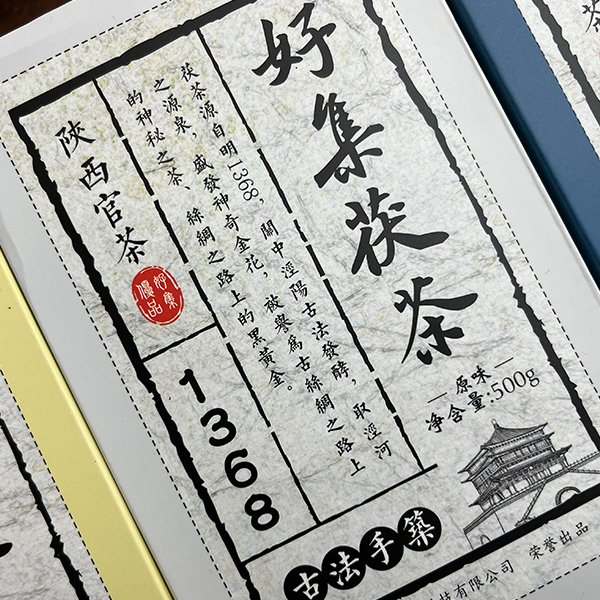 好集茯茶
原味
净含量:500g
茯茶源自明1368，關中涇陽古法發酵，取涇河
之源泉，盛發神奇金花，被譽爲古絲綢之路上
的神秘之茶、絲綢之路上的黑黃金。
陝西官茶
好集
優品
1368
古法手築
技有限公司 荣誉出品
茶